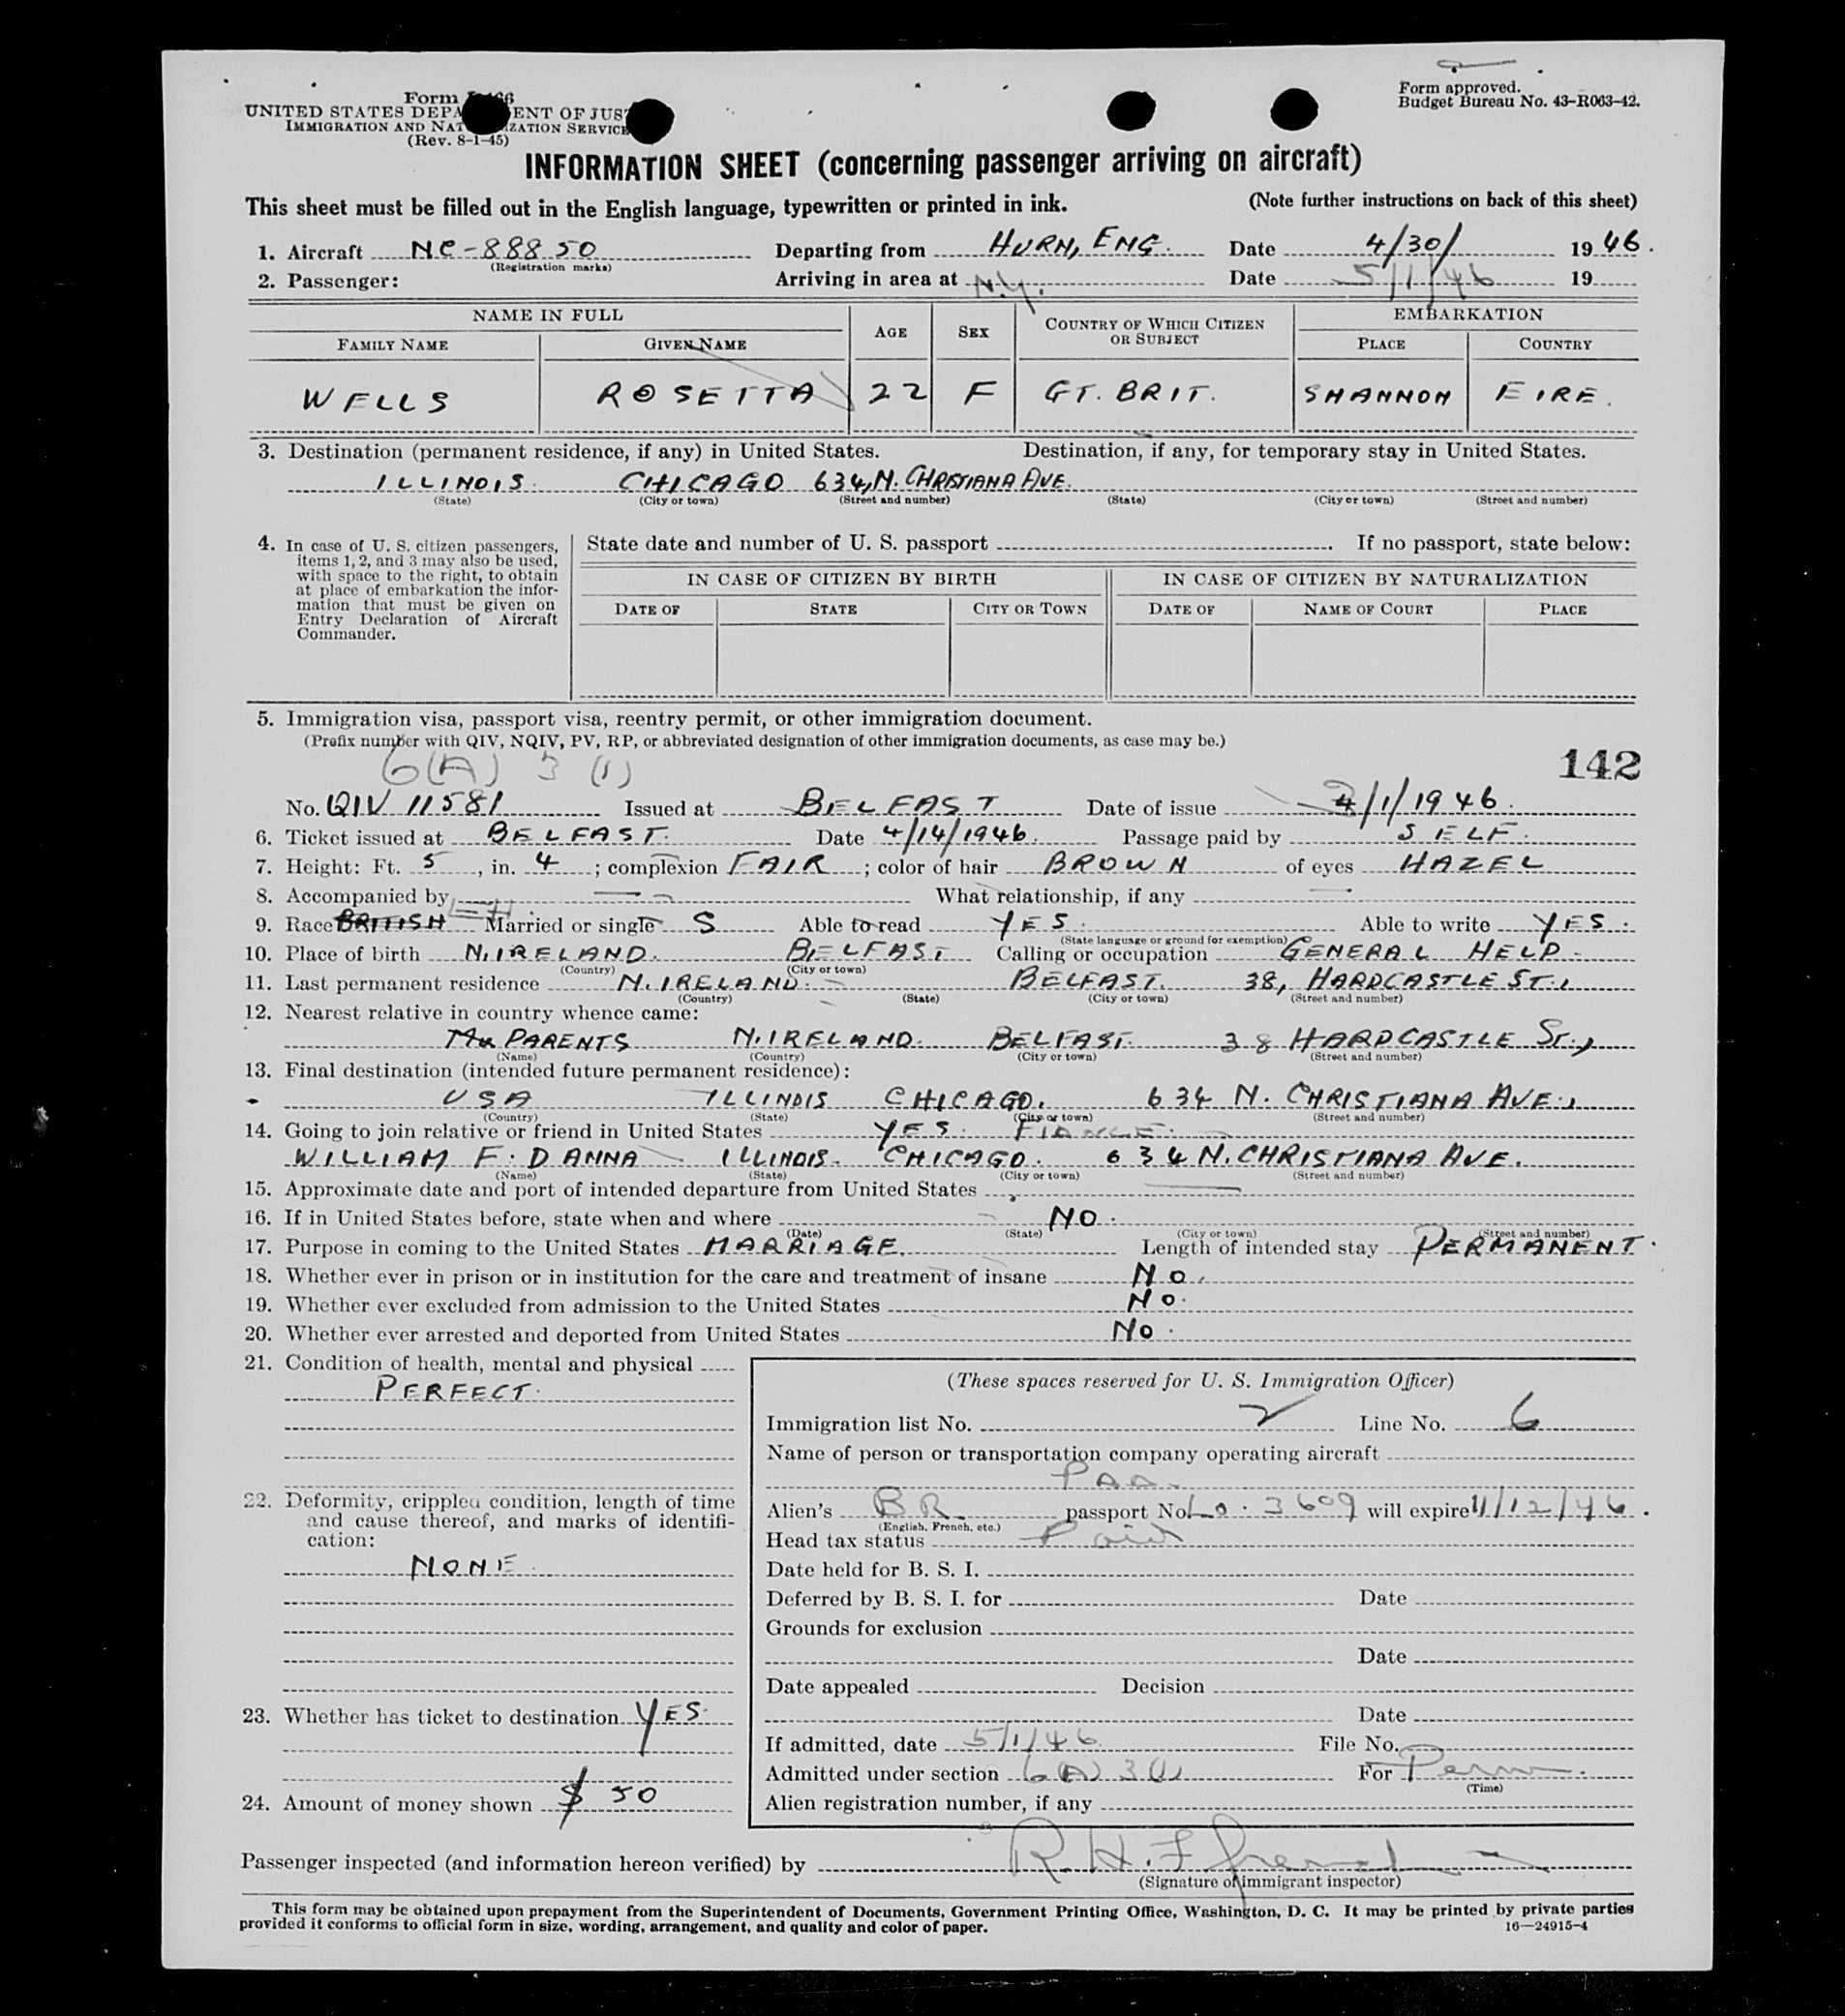 Form approved.
Budget Bureau No. 43-R063-42.
Form
UNITED STATES DEPA ENT OF JUS
IMMIGRATION AND NAT IZATION SERVICE
(Rev. 8-1-45)
INFORMATION SHEET (concerning passenger arriving on aircraft)
This sheet must be filled out in the English language, typewritten or printed in ink. (Note further instructions on back of this sheet)
1. Aircraft NC-88850 Departing from HURN, ENG. Date 4/30/ 19 46.
(Registration marks)
2. Passenger: Arriving in area at N.Y. Date 5/1/46 19
NAME IN FULL AGE SEX COUNTRY OF WHICH CITIZEN OR SUBJECT EMBARKATION
FAMILY NAME GIVEN NAME PLACE COUNTRY
WELLS ROSETTA 22 F GT. BRIT. SHANNON EIRE.
3. Destination (permanent residence, if any) in United States. Destination, if any, for temporary stay in United States.
ILLINOIS. CHICAGO 634, N. CHRISTIANA AVE.
(State) (City or town) (Street and number) (State) (City or town) (Street and number)
4. In case of U. S. citizen passengers, items 1, 2, and 3 may also be used, with space to the right, to obtain at place of embarkation the information that must be given on Entry Declaration of Aircraft Commander.
State date and number of U. S. passport . If no passport, state below:
IN CASE OF CITIZEN BY BIRTH IN CASE OF CITIZEN BY NATURALIZATION
DATE OF STATE CITY OR TOWN DATE OF NAME OF COURT PLACE
5. Immigration visa, passport visa, reentry permit, or other immigration document.
(Prefix number with QIV, NQIV, PV, RP, or abbreviated designation of other immigration documents, as case may be.)
6(A) 3 (1) 142
No. QIV 11581 Issued at BELFAST Date of issue 4/1/1946.
6. Ticket issued at BELFAST. Date 4/14/1946. Passage paid by SELF.
7. Height: Ft. 5, in. 4; complexion FAIR; color of hair BROWN of eyes HAZEL
8. Accompanied by — What relationship, if any —
9. Race BRITISH Married or single S Able to read YES. Able to write YES.
(State language or ground for exemption)
10. Place of birth N. IRELAND. BELFAST Calling or occupation GENERAL HELP.
(Country) (City or town)
11. Last permanent residence N. IRELAND. BELFAST. 38, HARDCASTLE ST.,
(Country) (State) (City or town) (Street and number)
12. Nearest relative in country whence came:
PARENTS N. IRELAND. BELFAST. 38 HARDCASTLE ST.,
(Name) (Country) (City or town) (Street and number)
13. Final destination (intended future permanent residence):
USA ILLINOIS CHICAGO. 634 N. CHRISTIANA AVE.,
(Country) (State) (City or town) (Street and number)
14. Going to join relative or friend in United States YES. FIANCE.
WILLIAM F. DANNA ILLINOIS. CHICAGO. 634 N. CHRISTIANA AVE.
(Name) (State) (City or town) (Street and number)
15. Approximate date and port of intended departure from United States —
16. If in United States before, state when and where NO.
(Date) (State) (City or town) (Street and number)
17. Purpose in coming to the United States MARRIAGE. Length of intended stay PERMANENT.
18. Whether ever in prison or in institution for the care and treatment of insane NO.
19. Whether ever excluded from admission to the United States NO.
20. Whether ever arrested and deported from United States NO.
21. Condition of health, mental and physical
PERFECT.
22. Deformity, crippled condition, length of time and cause thereof, and marks of identification:
NONE.
23. Whether has ticket to destination YES.
24. Amount of money shown $ 50
(These spaces reserved for U. S. Immigration Officer)
Immigration list No. 2 Line No. 6
Name of person or transportation company operating aircraft
PAA.
Alien's BR. passport No. Lo. 3609 will expire 11/12/46.
(English, French, etc.)
Head tax status Paid
Date held for B. S. I.
Deferred by B. S. I. for Date
Grounds for exclusion
Date
Date appealed Decision
Date
If admitted, date 5/1/46 File No.
Admitted under section 6(A) 3(1) For Perm.
(Time)
Alien registration number, if any
Passenger inspected (and information hereon verified) by R. H.
(Signature of immigrant inspector)
This form may be obtained upon prepayment from the Superintendent of Documents, Government Printing Office, Washington, D. C. It may be printed by private parties
provided it conforms to official form in size, wording, arrangement, and quality and color of paper. 16—24915-4